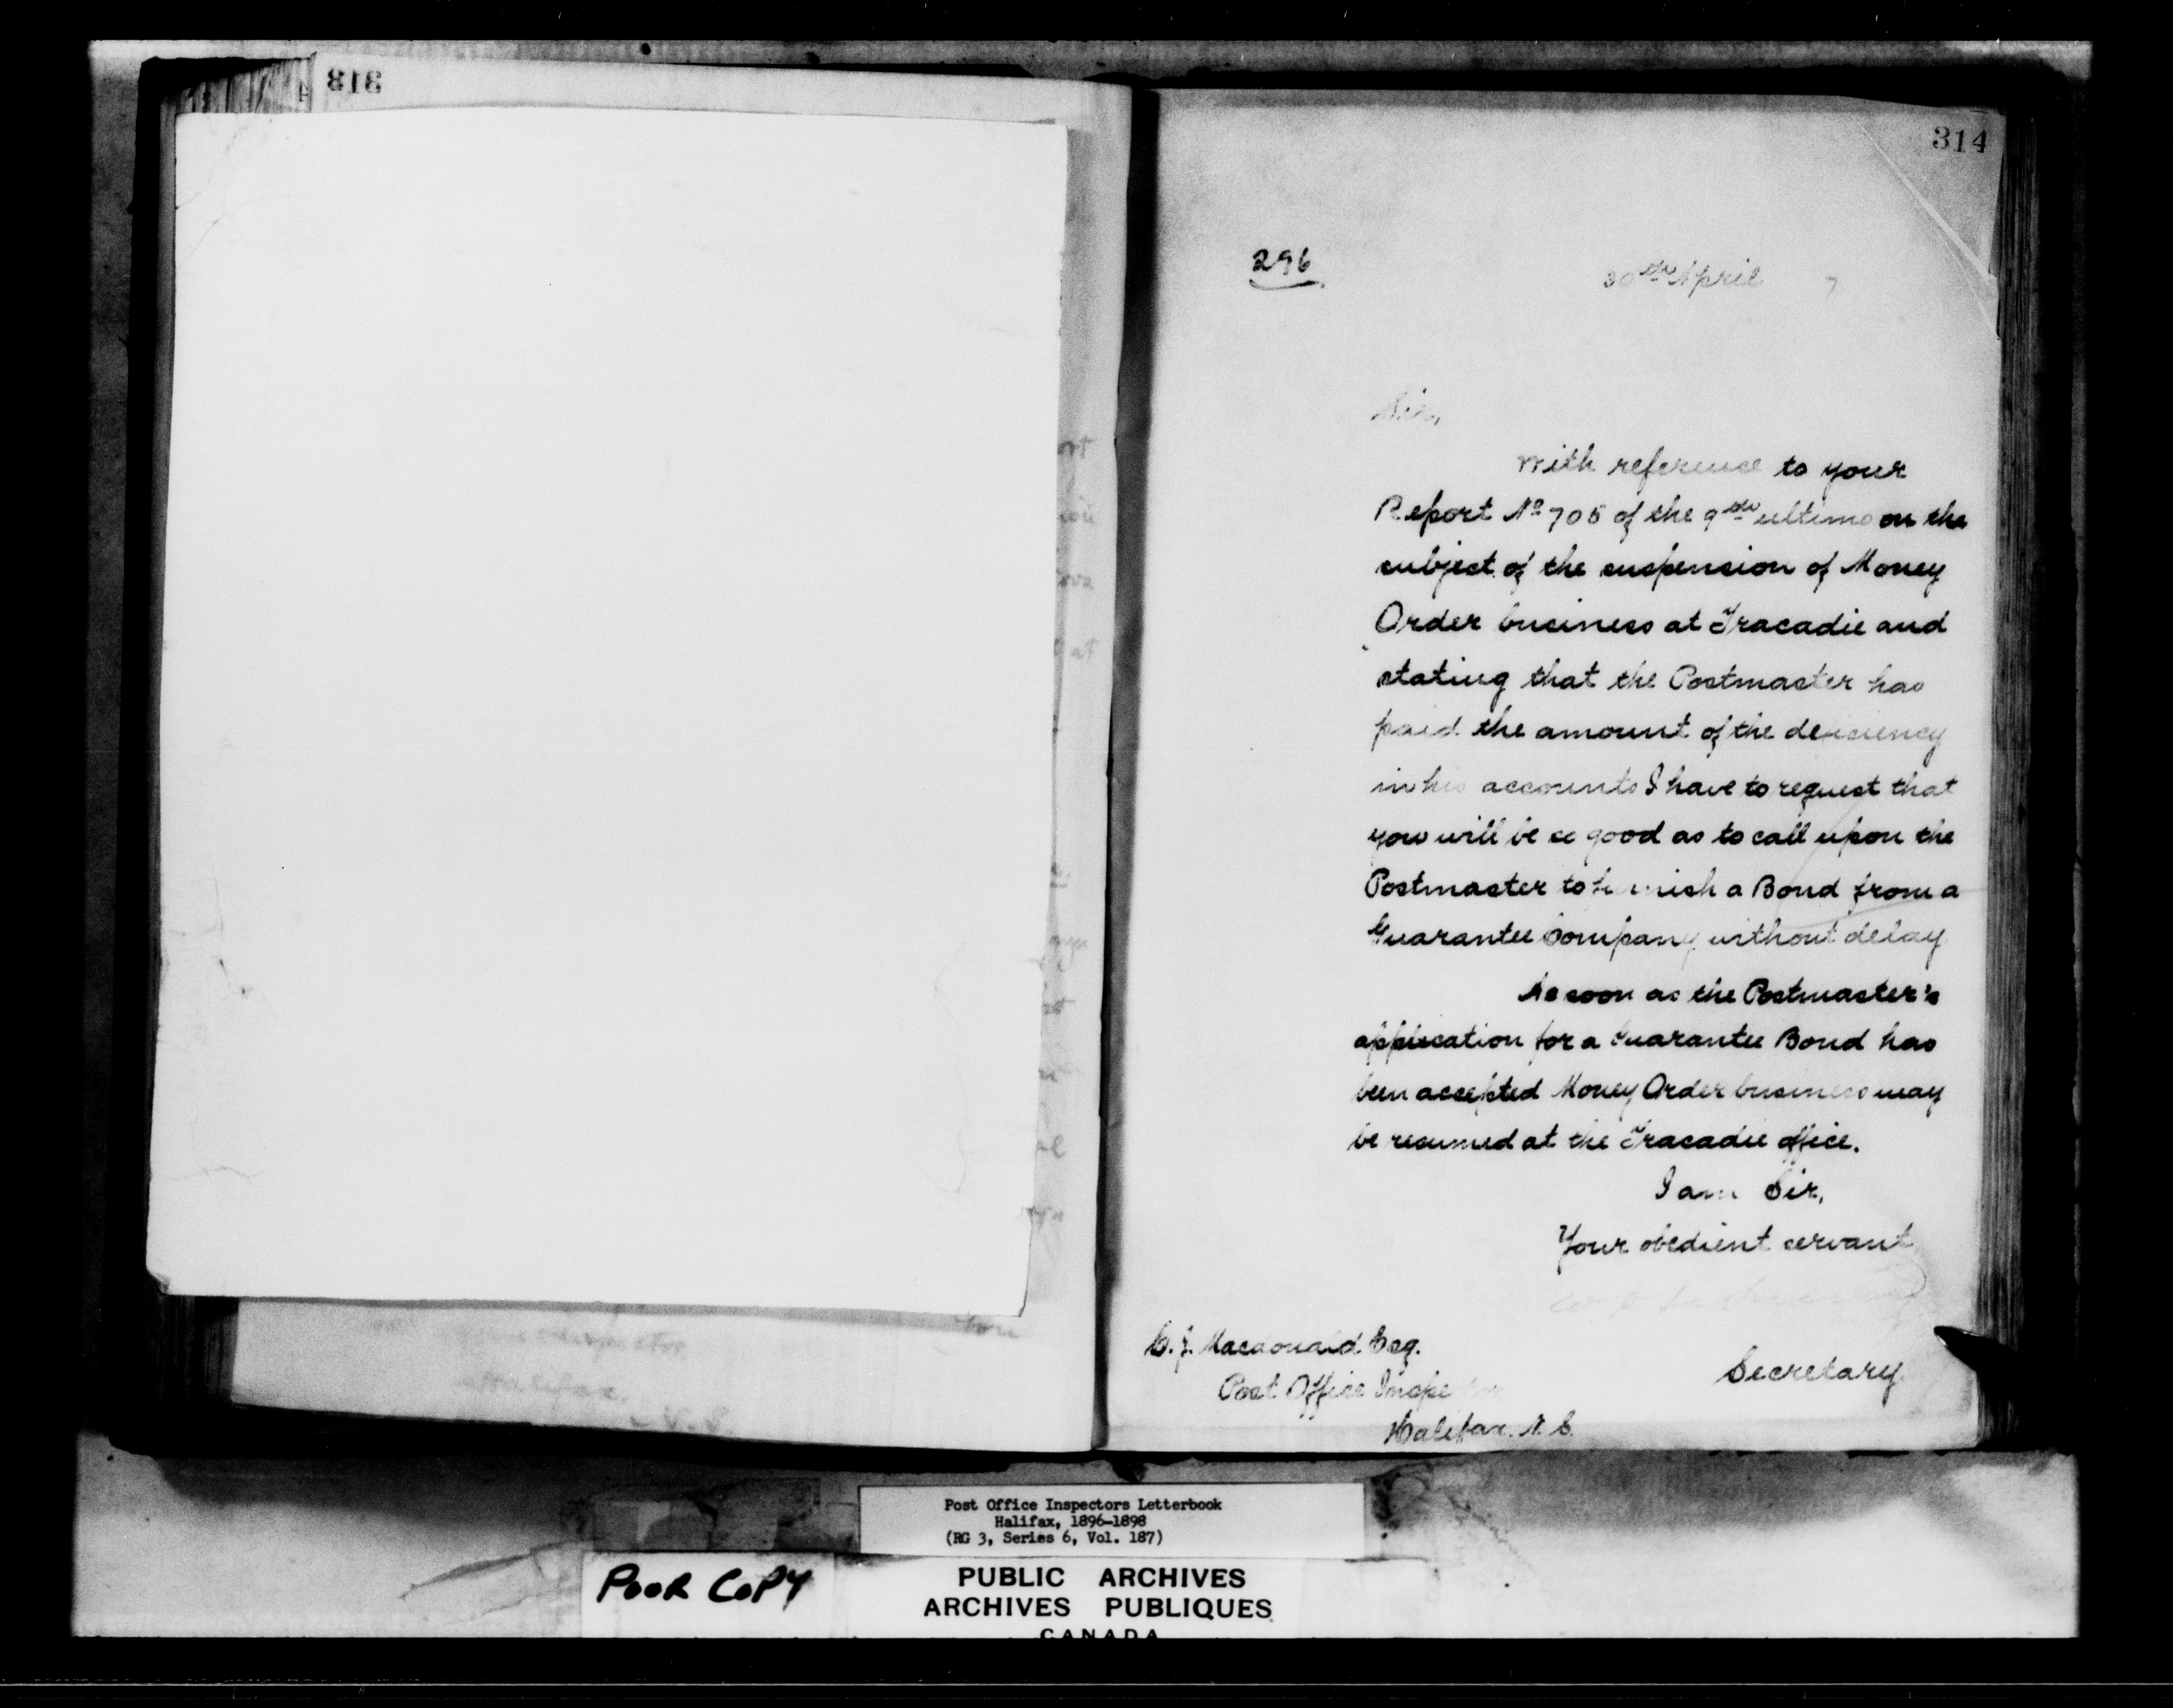 313
314
296
30th April 7
Sir,
With reference to your
Report No 705 of the 9th ultimo on the
subject of the suspension of Money
Order business at Tracadie and
stating that the Postmaster has
paid the amount of the deficiency
in his accounts I have to request that
you will be so good as to call upon the
Postmaster to furnish a Bond from a
Guarantee Company without delay
As soon as the Postmaster's
application for a Guarantee Bond has
been accepted Money Order business may
be resumed at the Tracadie office.
I am Sir,
Your obedient servant
Secretary
C. J. Macdonald Esq.
Post Office Inspector
Halifax. N. S.
Halifax.
N. S.
Post Office Inspectors Letterbook
Halifax, 1896-1898
(RG 3, Series 6, Vol. 187)
POOR COPY
PUBLIC ARCHIVES
ARCHIVES PUBLIQUES
CANADA